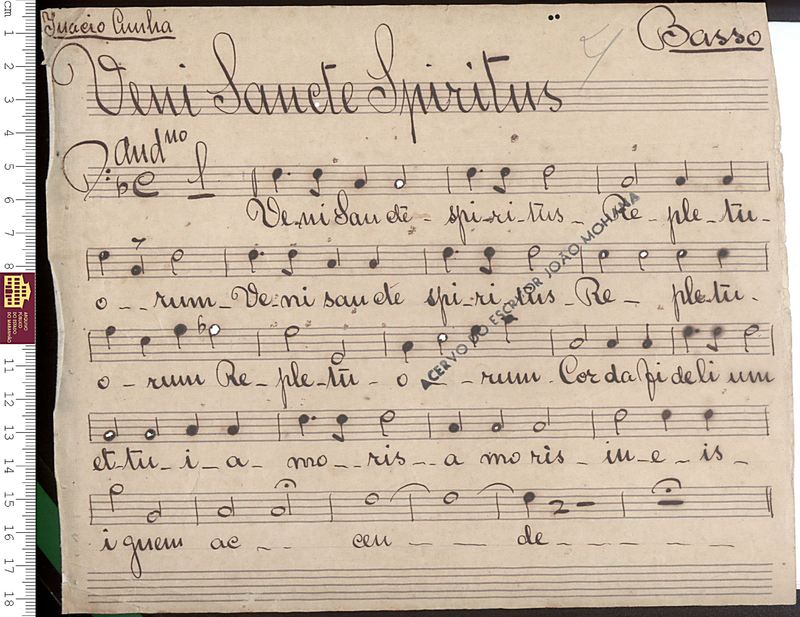 Ignacio Cunha
Basso
Veni Sancte Spiritus
And no
Ve-ni San cte - spi-ri-tus - Re - ple - tu -
o - - rum - Ve-ni san cte spi-ri-tus - Re - ple-tu -
o - rum Re - ple-tu - o - - rum - Cor da fi de li um
et-tu - i - a - mo - - ris - - a mo ris - in - e - is -
i gnem ac - - cen - - de - - - - -
ACERVO DO ESCRITOR JOÃO MOHANA
cm 1 2 3 4 5 6 7 8 11 12 13 14 15 16 17 18
ARQUIVO PÚBLICO DO ESTADO DO MARANHÃO